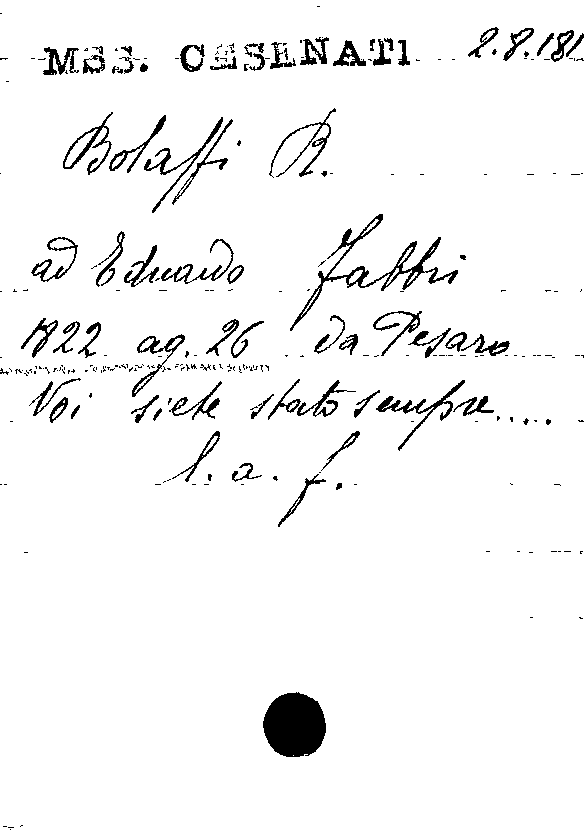 MSS. CESENATI 2.8.181
Bolaffi R.
ad Eduardo Fabbri
1822 ag. 26 da Pesaro
Voi siete stato sempre.....
l. a. f.